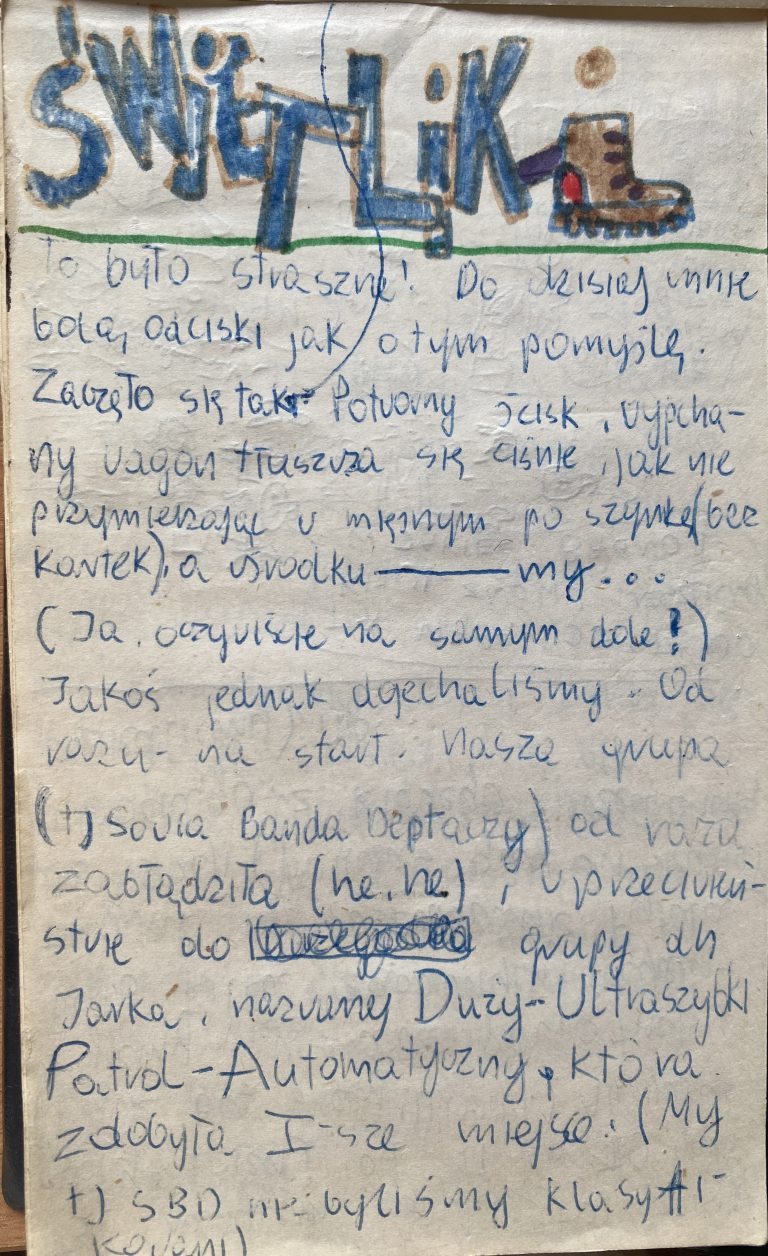 ŚWIETLIKI
To było straszne! Do dzisiaj mnie
bolą odciski jak o tym pomyślę.
Zaczęło się tak: Potworny ścisk, wypcha-
ny wagon tłuszcza się ciśnie, jak nie
przymierzając w mięsnym po szynkę (bez
kartek), a w środku — my...
(Ja, oczywiście na samym dole!)
Jakoś jednak dojechaliśmy. Od
razu - na start. Nasza grupa
(tj Sowia Banda Deptaczy) od razu
zabłądziła (he, he), w przeciwień-
stwie do grupy dh
Jarka, nazwanej Duży-Ultraszybki
Patrol-Automatyczny, która
zdobyła I-sze miejsce. (My
tj SBD nie byliśmy klasyfi-
kowani)